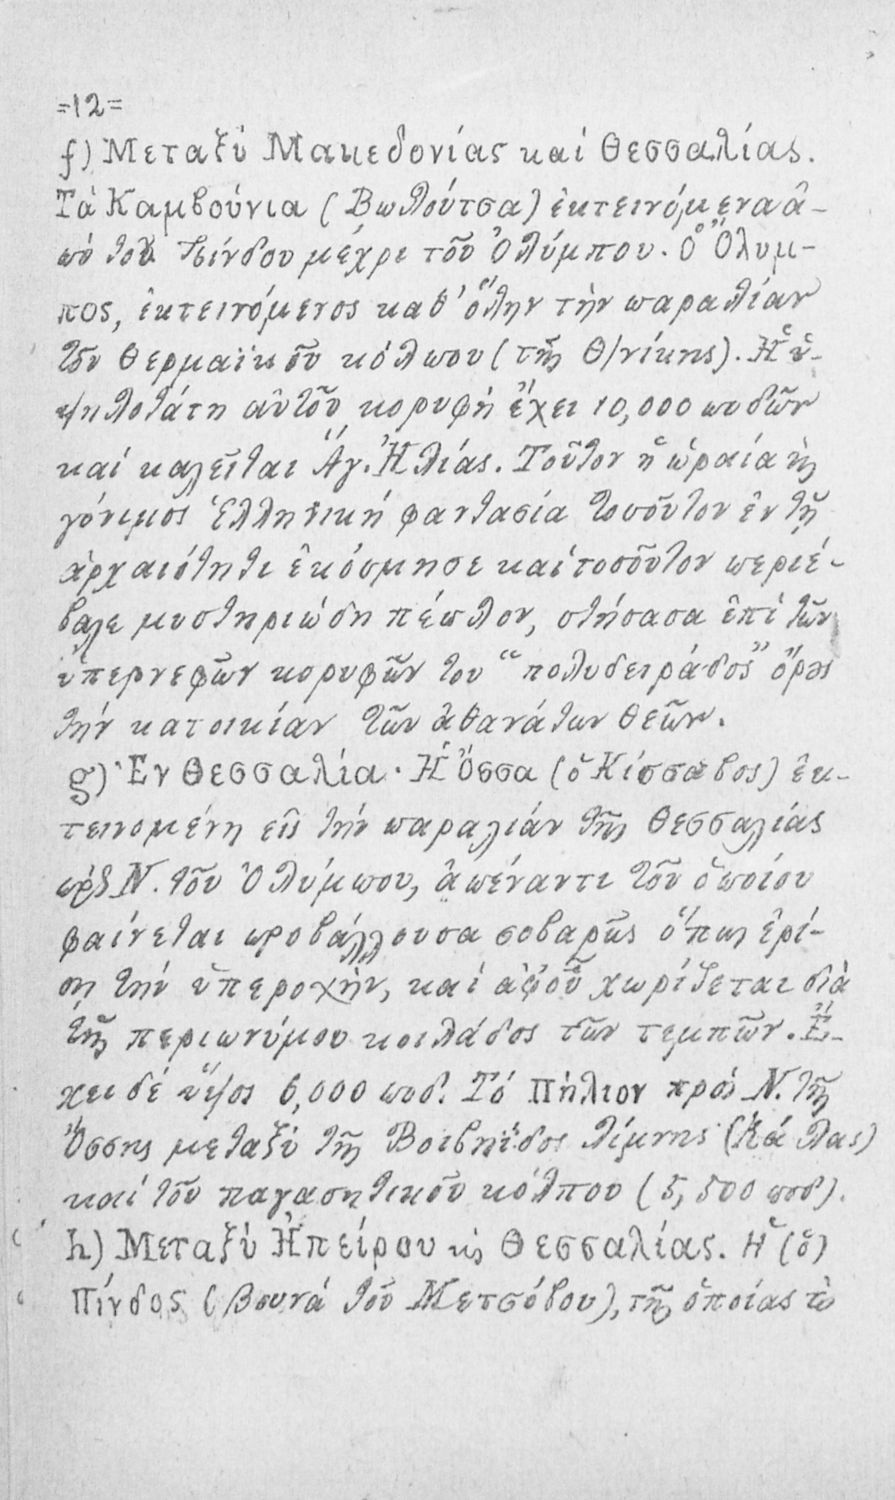 =12=
f) Μεταξὺ Μακεδονίας καὶ Θεσσαλίας.
Τὰ Καμβούνια (Βωλούτσα) ἐκτεινόμενα ἀ-
πὸ τοῦ Πίνδου μέχρι τοῦ Ὀλύμπου. Ὁ Ὄλυμ-
πος, ἐκτεινόμενος καθ' ὅλην τὴν παραλίαν
τοῦ Θερμαϊκοῦ κόλπου (τῆς Θ/νίκης). Ἡ ὑ-
ψηλοτάτη αὐτοῦ κορυφὴ ἔχει 10,000 ποδῶν
καὶ καλεῖται Ἅγ. Ἠλίας. Τοῦτον ἡ ὡραία κ̀
γόνιμος Ἑλληνικὴ φαντασία τοσοῦτον ἐν τῇ
ἀρχαιότητι ἐκόσμησε καὶ τοσοῦτον περιέ-
βαλε μυστηριώδη πέπλον, στήσασα ἐπὶ τῶν
ὑπερνεφῶν κορυφῶν του "πολυδειράδος" ὄρος
τὴν κατοικίαν τῶν ἀθανάτων θεῶν.
g) Ἐν Θεσσαλία. Ἡ Ὄσσα (ὁ Κίσσαβος) ἐκ-
τεινομένη εἰς τὴν παραλιάν τῆς Θεσσαλίας
πρὸς Ν. τοῦ Ὀλύμπου, ἀπέναντι τοῦ ὁποίου
φαίνεται προβάλλουσα σοβαρῶς ὅπως ἐρί-
ση τὴν ὑπεροχὴν, καὶ ἀφ' οὗ χωρίζεται διὰ
τῆς περιωνύμου κοιλάδος τῶν τεμπῶν. Ἔ-
χει δὲ ὕψος 6,000 ποδ. Τὸ Πήλιον πρὸς Ν. τῆς
Ὄσσης μεταξὺ τῆς Βοιβηΐδος λίμνης (Κάρλας)
καὶ τοῦ παγασητικοῦ κόλπου (5,500 ποδ).
h) Μεταξὺ Ἠπείρου κ̀ Θεσσαλίας. Ἡ (ὁ)
Πίνδος (Βουνά τοῦ Μετσόβου), τῆς ὁποίας τὸ